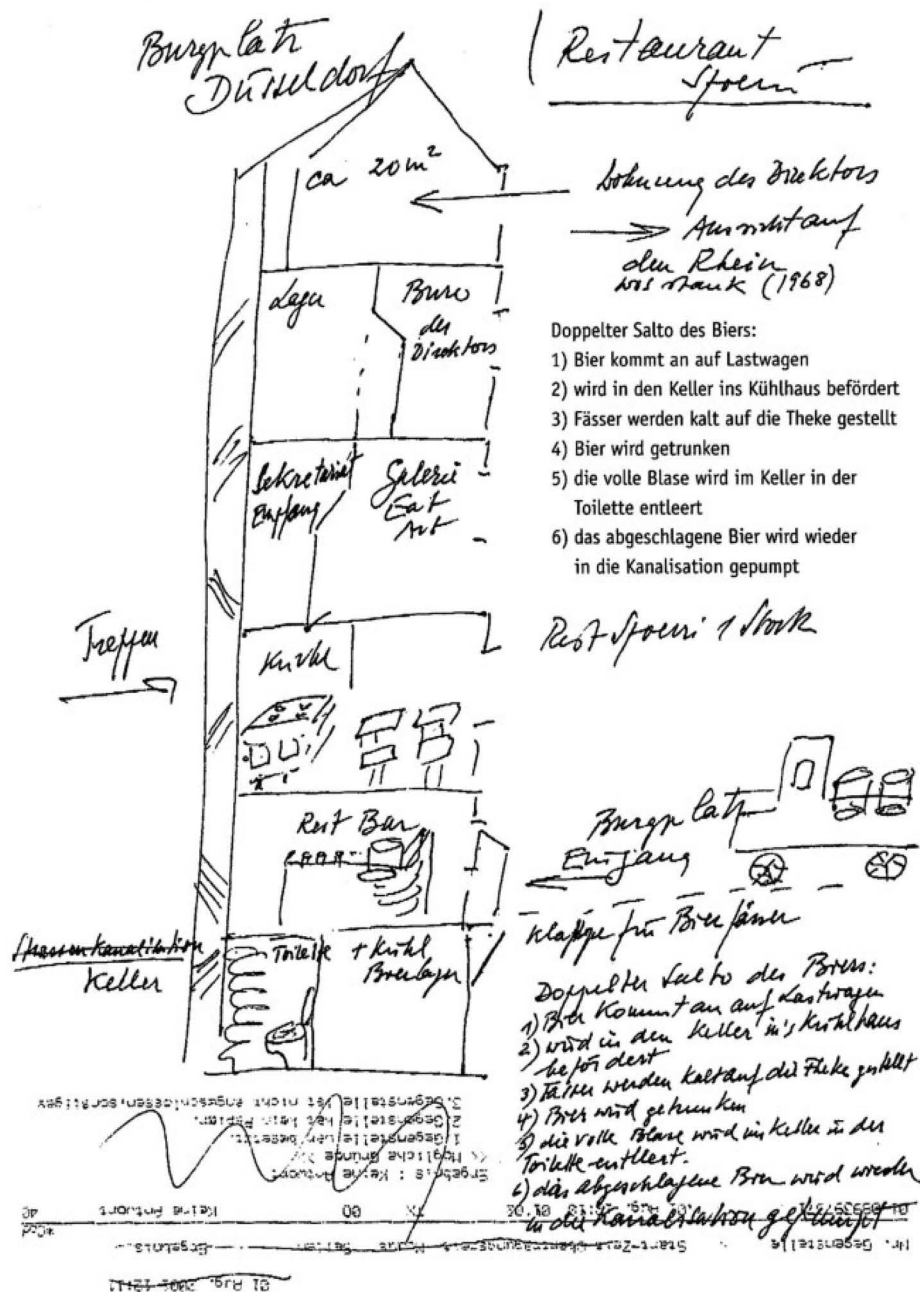 Burgplatz
Düsseldorf
Restaurant
Spoerri
ca 20 m²
Wohnung des Direktors
Aussicht auf
den Rhein
was stank (1968)
Lager
Büro
des
Direktors
Doppelter Salto des Biers:
1) Bier kommt an auf Lastwagen
2) wird in den Keller ins Kühlhaus befördert
3) Fässer werden kalt auf die Theke gestellt
4) Bier wird getrunken
5) die volle Blase wird im Keller in der
Toilette entleert
6) das abgeschlagene Bier wird wieder
in die Kanalisation gepumpt
Sekretariat
Empfang
Galerie
Eat
Art
Rest Spoerri 1 Stock
Treppen
Küche
Rest Bar
Burgplatz
Eingang
Klappe für Bierfässer
Strassenkanalisation
Keller
Toilette
+ Kühl
Bierlager
Doppelter Salto des Biers:
1) Bier kommt an auf Lastwagen
2) wird in den Keller in's Kühlhaus
befördert
3) Fässer werden kalt auf die Theke gestellt
4) Bier wird getrunken
5) die volle Blase wird im Keller in der
Toilette entleert.
6) das abgeschlagene Bier wird wieder
in die Kanalisation gepumpt
3.Gegenstelle ist nicht angeschlossen,
2.Gegenstelle hat kein Papier.
1.Gegenstelle besetzt.
Mögliche Gründe
Ergebnis : Keine Antwort
TX 00 Keine Antwort
Nr. Gegenstelle Start-Zeit Modus Seiten Ergebnis
01 Aug.